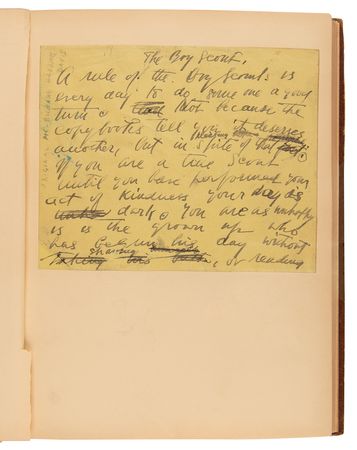 The Boy Scout.
A rule of the Boy Scouts is
every day to do some one a good
turn. Not because the
copybooks tell you it deserves
another, but in spite of that
If you are a true Scout
until you have performed your
act of kindness your day is
dark. You are as unhappy
as is the grown up who
has begun his day without
shaving
or reading